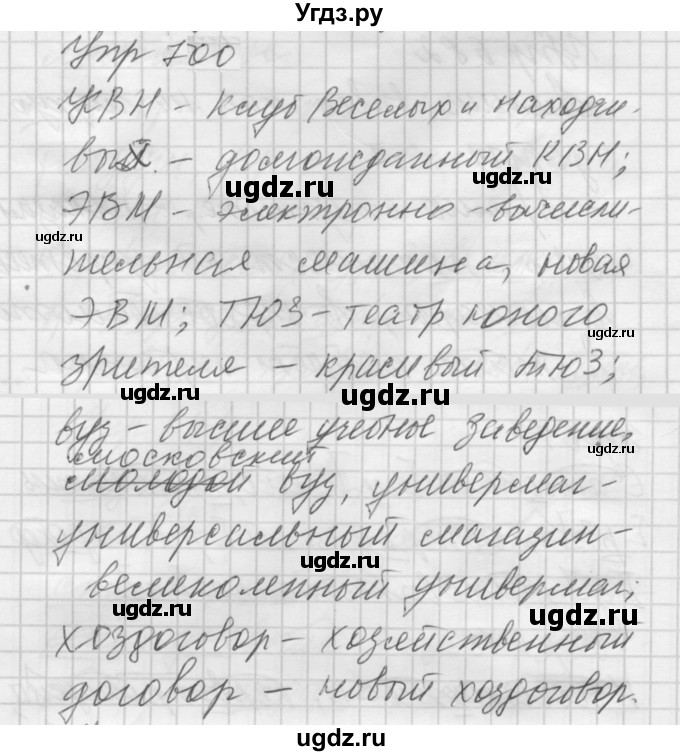 Угдз.ру
Упр 700
КВН - Клуб Веселых и находчи-
вых. - долгожданный КВН;
ugdz.ru
ЭВМ - электронно-вычисли-
ugdz.ru
тельная машина, новая
ЭВМ; ТЮЗ - театр юного
ugdz.ru
зрителя - красивый ТЮЗ;
ugdz.ru
ugdz.ru
вуз - высшее учебное заведение,
московский
молодой вуз, универмаг-
ugdz.ru
универсальный магазин-
ugdz.ru
великолепный универмаг;
ugdz.ru
ugdz.ru
хоздоговор - хозяйственный
договор - новый хоздоговор.
ugdz.ru